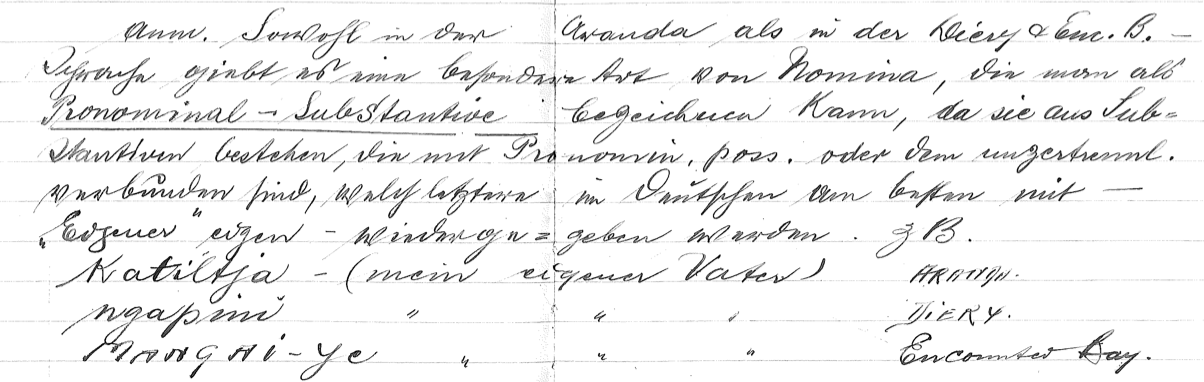 Anm. Sowohl in der Aranda als in der Diery & Enc. B. –
Sprache giebt es eine besondere Art von Nomina, die man als
Pronominal – Substantive bezeichnen kann, da sie aus Sub=
stantiven bestehen, die mit Pronomin. poss. oder dem unzertrennl.
verbunden sind, welch letztere im Deutschen am besten mit –
"Eigener" eigen – wiederge= geben werden. z B.
Katiltja – (mein eigener Vater) ARANDA.
ngapini " " " DIERY.
MANGAI-ye " " " Encounter Bay.